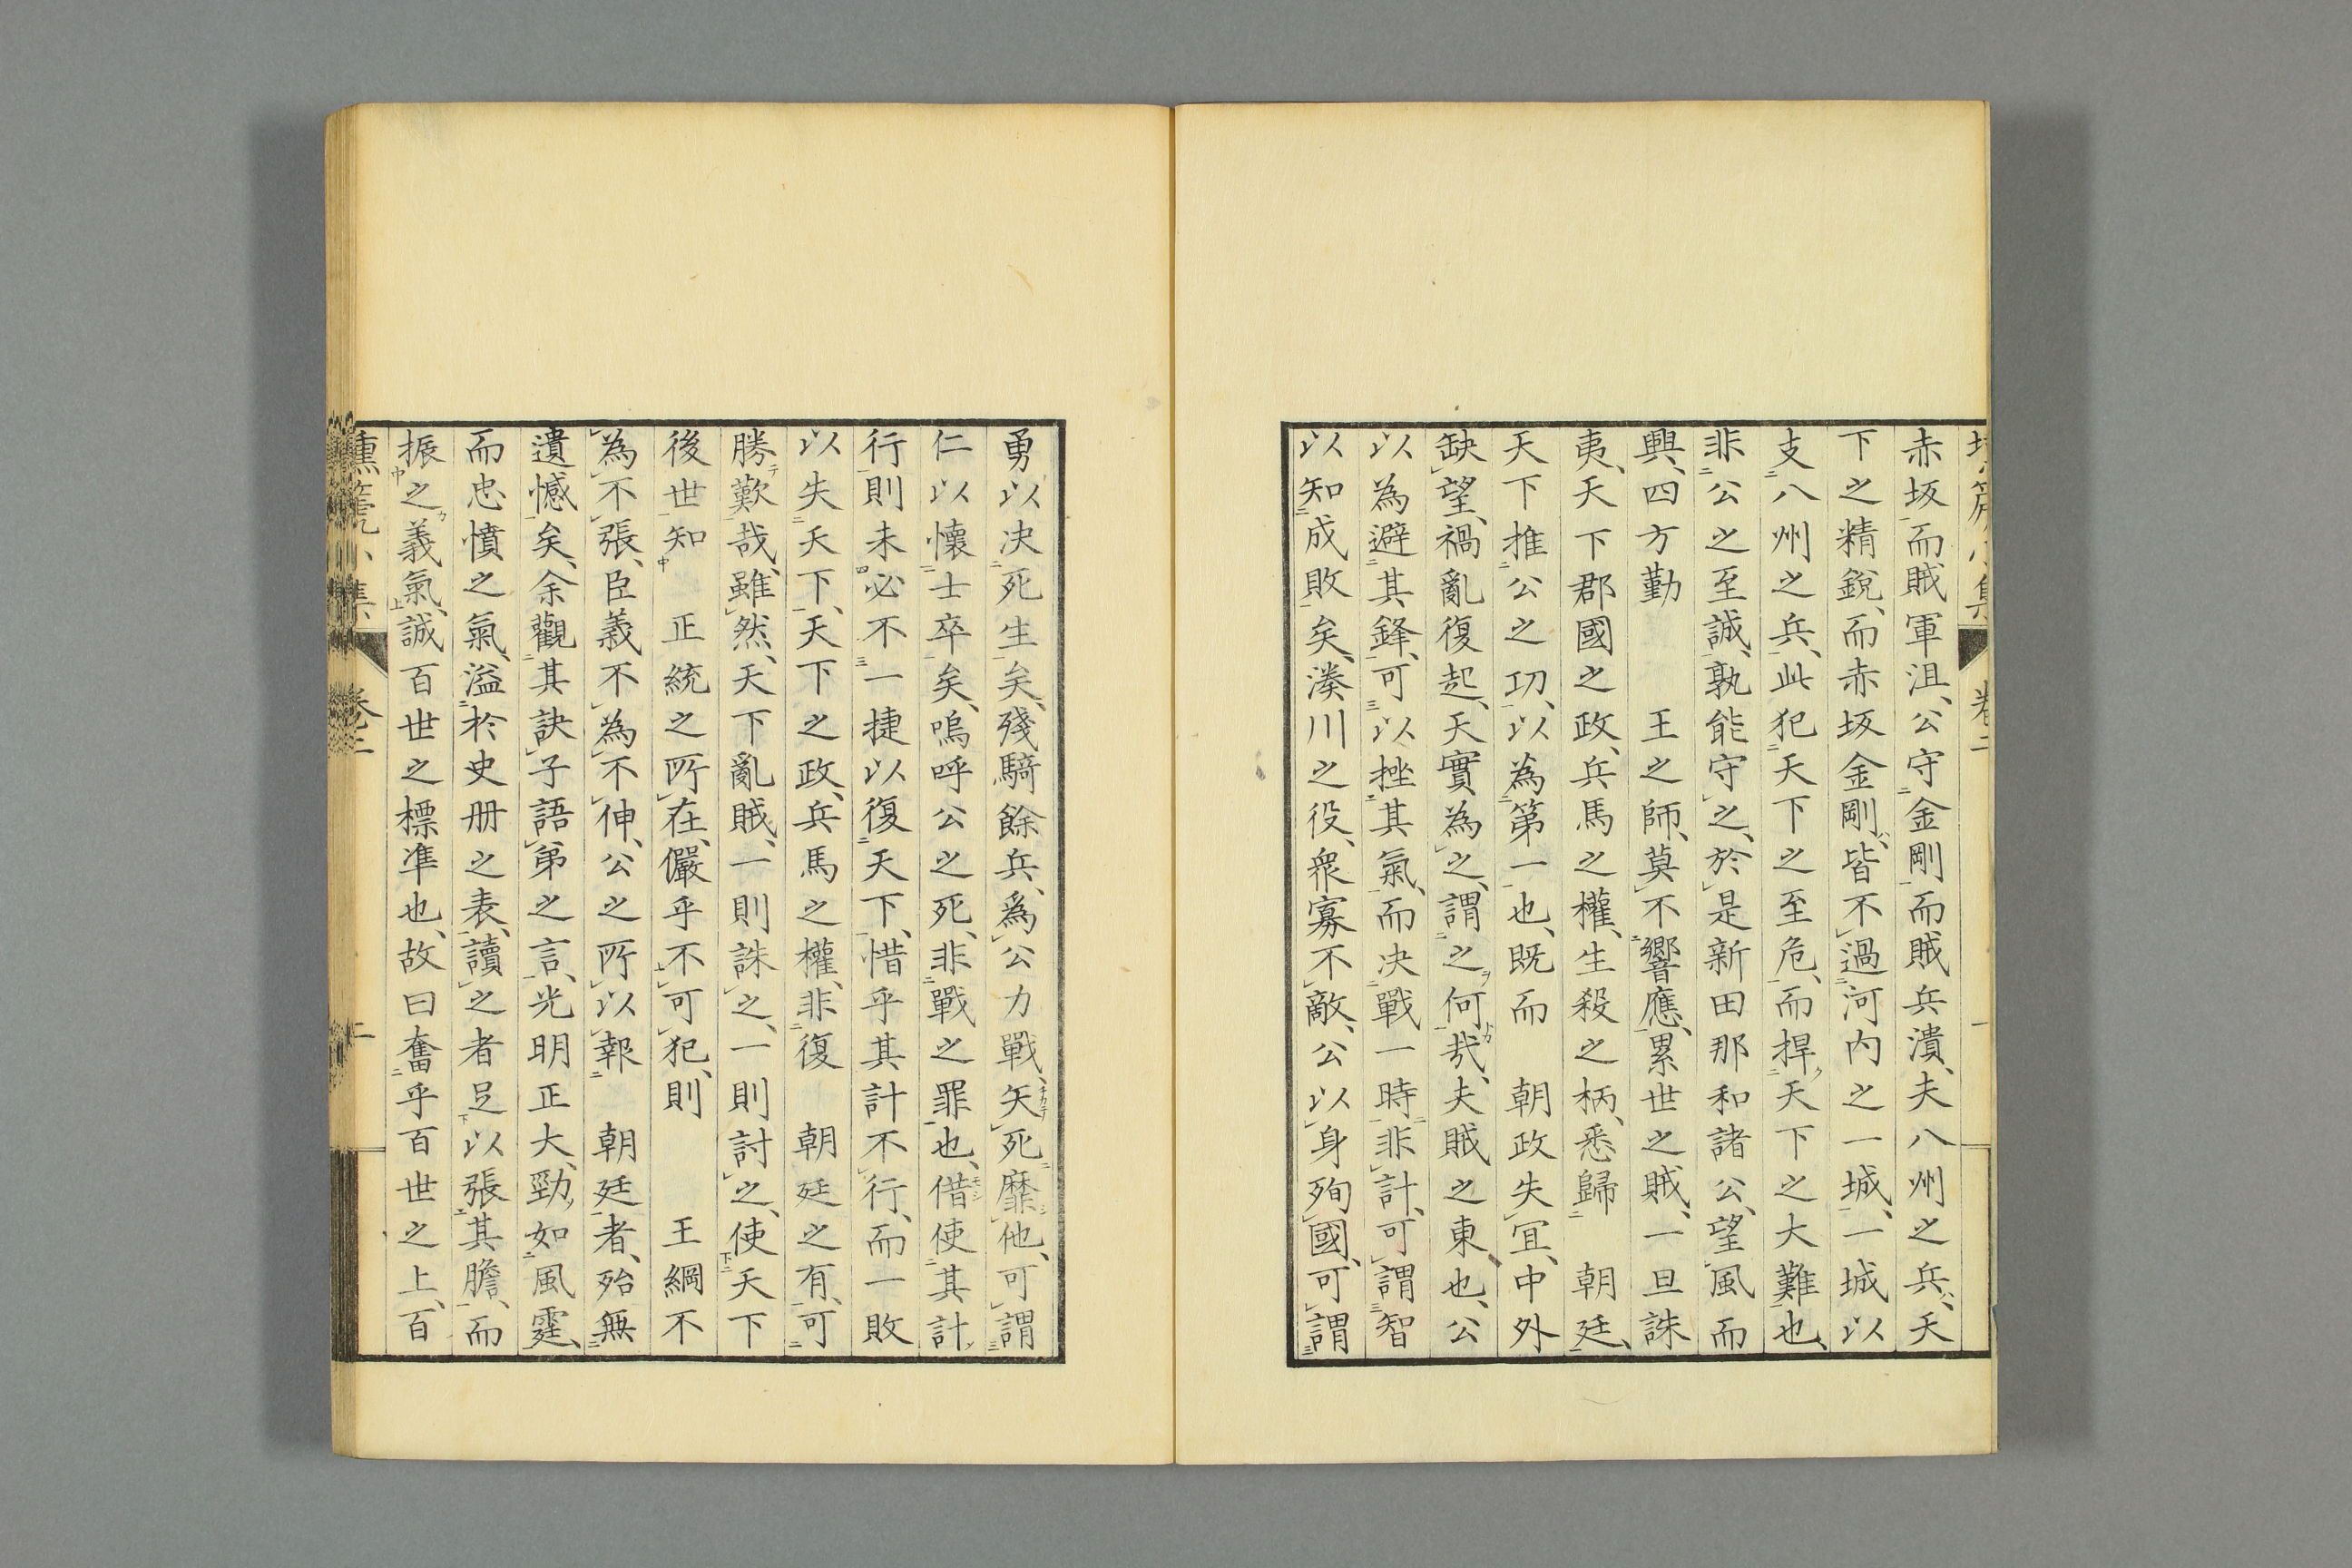 赤坂而賊軍沮、公守金剛而賊兵潰、夫八州之兵、天
下之精銳、而赤坂金剛、皆不過河内之一城、一城以
支八州之兵、此犯天下之至危、而捍天下之大難也、
非公之至誠、孰能守之、於是新田那和諸公、望風而
興、四方勤　王之師、莫不響應、累世之賊、一旦誅
夷、天下郡國之政、兵馬之權、生殺之柄、悉歸　朝廷、
天下推公之功、以為第一也、既而　朝政失宜、中外
缺望、禍亂復起、天實為之、謂之何哉、夫賊之東也、公
以為避其鋒、可以挫其氣、而决戰一時非計、可謂智
以知成敗矣、湊川之役、衆寡不敵、公以身殉國、可謂
勇以决死生矣、殘騎餘兵、爲公力戰、矢死靡他、可謂
仁以懷士卒矣、嗚呼公之死、非戰之罪也、借使其計
行則未必不一捷以復天下、惜乎其計不行、而一敗
以失天下、天下之政、兵馬之權、非復　朝廷之有、可
勝歎哉、雖然、天下亂賊、一則誅之、一則討之、使天下
後世知　正統之所在、儼乎不可犯、則　王綱不
為不張、臣義不為不伸、公之所以報　朝廷者、殆無
遺憾矣、余觀其訣子語弟之言、光明正大、勁如風霆、
而忠憤之氣、溢於史册之表、讀之者足以張其膽、而
振之義氣、誠百世之標準也、故曰奮乎百世之上、百